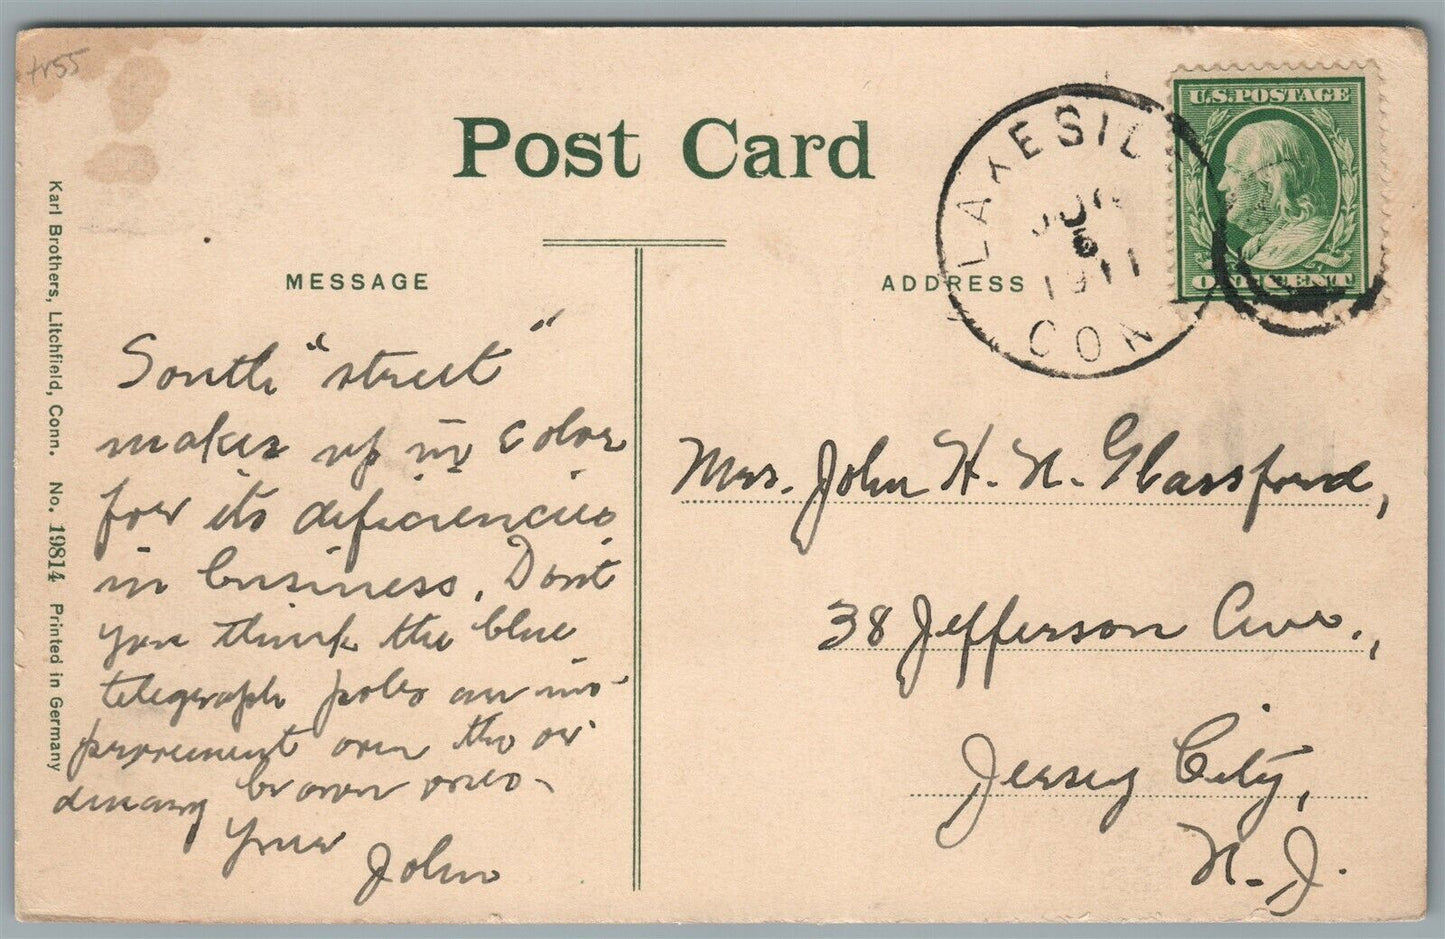 tr55
Post Card
MESSAGE
ADDRESS
Karl Brothers, Litchfield, Conn. No. 19814 Printed in Germany
U.S.POSTAGE
ONE CENT
LAKESID
1911
CON
South "street"
makes up in color
for its deficiencies
in business. Dont
you think the blue
telegraph poles an im-
provement over the or
dinary brown ones-
Your
John
Mrs. John H. N. Glassford,
38 Jefferson Ave.,
Jersey City,
N. J.